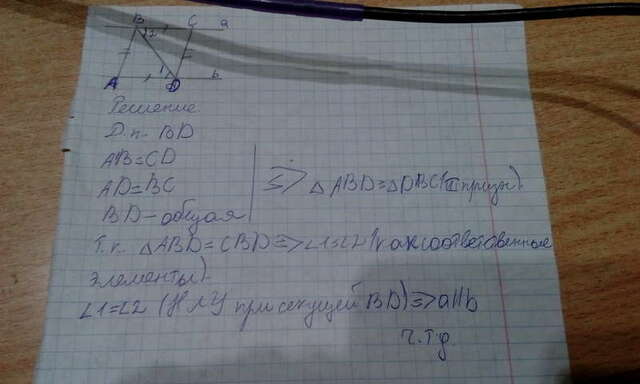 B C a
2
1
A D b
Решение
Д.п. BD
AB=CD
AD=BC
BD-общая
=> △ABD=△DBC(III призн).
Т.к. △ABD=CBD=>∠1=∠2(как соответственные
элементы).
∠1=∠2 (НЛУ при секущей BD)=>a||b
ч.т.д.